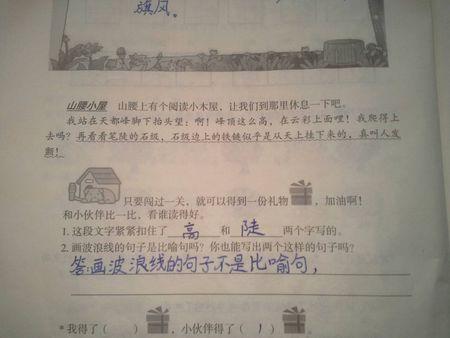 旗风。
山腰小屋 山腰上有个阅读小木屋，让我们到那里休息一下吧。
我站在天都峰脚下抬头望：啊！峰顶这么高，在云彩上面哩！我爬得上
去吗？再看看笔陡的石级，石级边上的铁链似乎是从天上挂下来的，真叫人发
颤！
只要闯过一关，就可以得到一份礼物，加油啊！
和小伙伴比一比，看谁读得好。
1. 这段文字紧紧扣住了 高 和 陡 两个字写的。
2. 画波浪线的句子是比喻句吗？你也能写出两个这样的句子吗？
答:画波浪线的句子不是比喻句，
*我得了（ ），小伙伴得了（ 1 ）。